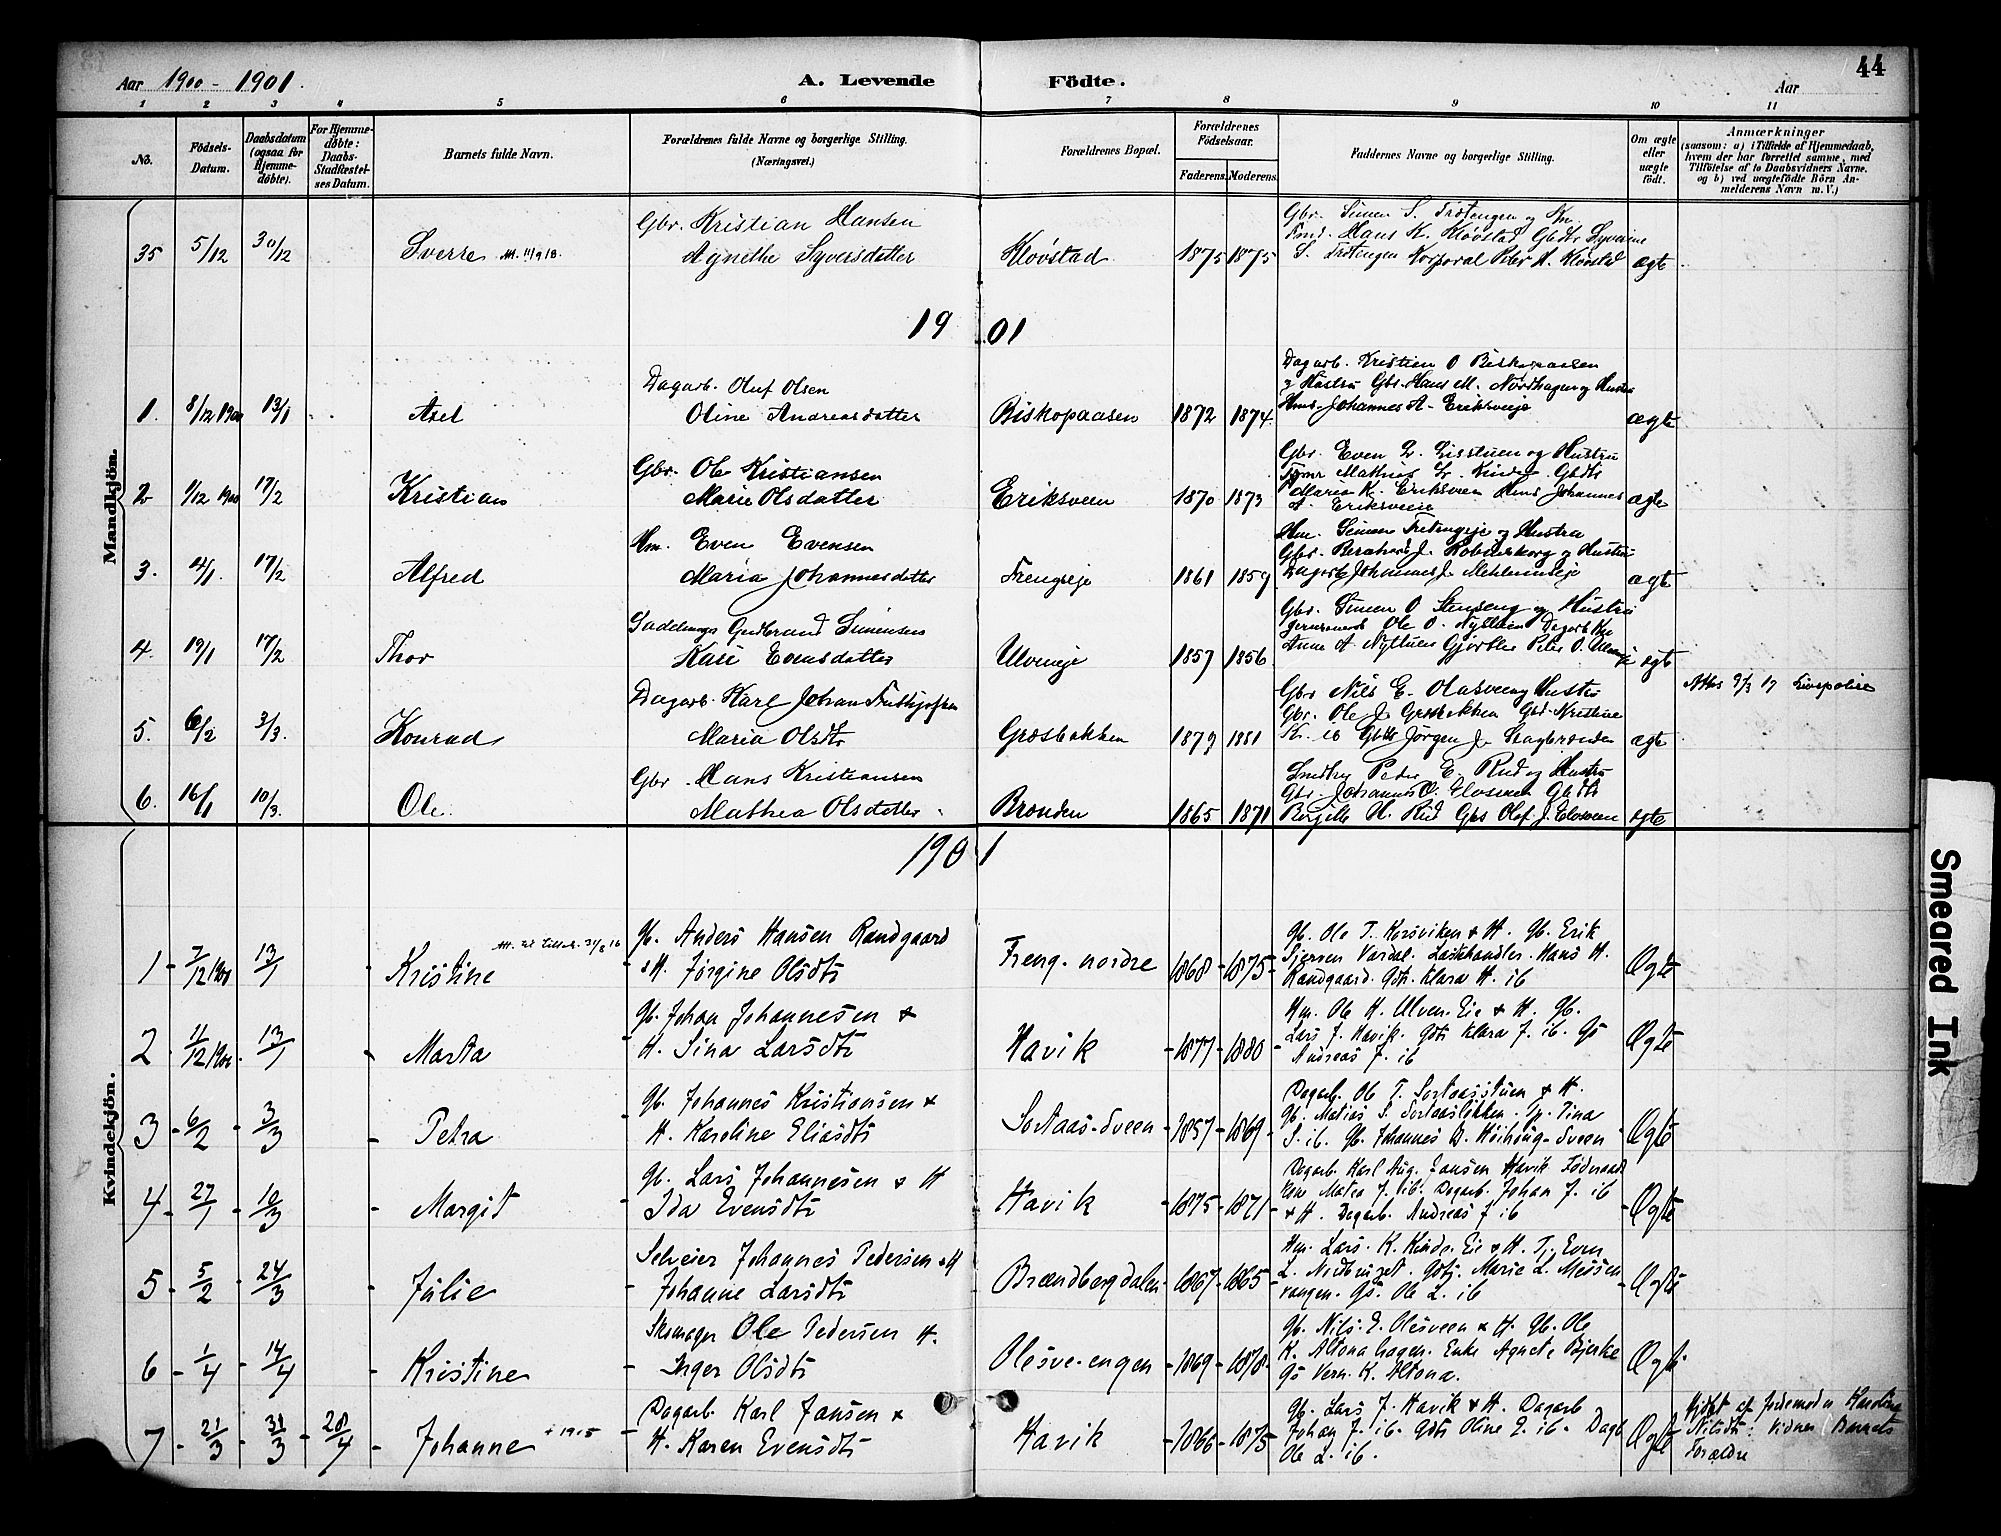 Aar 1900 - 1901.
A. Levende Födte.
Aar
44
1 2 3 4 5 6 7 8 9 10 11
No.
Födsels-Datum.
Daabsdatum (ogsaa for Hjemmedöbte).
For Hjemmedöbte: Daabs-Stadfæstelses Datum.
Barnets fulde Navn.
Forældrenes fulde Navne og borgerlige Stilling. (Næringsvei.)
Forældrenes Bopæl.
Forældrenes Födselsaar.
Faderens. Moderens.
Faddernes Navne og borgerlige Stilling.
Om ægte eller uægte födt.
Anmærkninger
(saasom: a) i Tilfælde af Hjemmedaab, hvem der har forrettet samme, med Tilföielse af to Daabsvidners Navne. og b) ved uægtefödte Börn Anmelderens Navn m. V.)
Mandkjön.
35 5/12 30/12 Sverre Att. 11/9 18.
Gbr. Kristian Hansen
Agnethe Syversdatter
Kløvstad 1875 1875
Gbr. Simen S. Trøtengen og Km.
Hans K. Kløvstad Gbdtr Syverine
S. Trøtengen Korporal Peter A. Kløvstad ægte
1901
1. 8/12 1900 13/1 Axel
Dagarb. Oluf Olsen
Oline Andreasdatter
Biskopaasen 1872 1874
Dagarb. Kristian O Biskopaasen
og Hustru Gbr. Hans M. Nordhagen og Hustru
Johannes A. Eriksveeje ægte
2 1/12 1900 17/2 Kristian
Gbr. Ole Kristiansen
Marie Olsdatter
Eriksveen 1870 1873
Gbr. Even L. Lisstuen og Hustru
Mathias Gbdtr
Maria K. Eriksveen Johannes
A. Eriksveeje ægte
3. 4/1. 17/2 Alfred
Hm. Even Evensen
Maria Johannesdatter
Frengseje 1861 1859
Hm. Simen og Hustru
Gbr. Bernhard J. og Hustru
Dagarb Johannes J. ægte
4. 19/1 17/2 Thor
Sadelmager Gudbrand Simensen
Kari Evensdatter
Ulveneje 1857 1856
Gbr. Simen O. Stenseng og Hustru
Ole O. Nythuen Dagarb Km
Anne A. Nythuen Gjørtler Peter O. ægte
5. 6/2 3/3. Konrad
Dagarb. Karl Johan Frithjofsen
Maria Olsdtr
Grøsbakken 1879 1881
Gbr Nils E. Olasveen og Hustru
Gbr. Ole J. Grøsbakken Gbd. Kristine
K. ib Gbds Jørgen J. ægte
9/3 17
6. 16/1 10/3. Ole
Gbr Hans Kristiansen
Mathea Olsdatter
Brønden 1865 1871
Smedby Peder E. Rud og Hustru
Gbr. Johannes O. Gbdtr
Birgitte H. Rud Gbs Olaf J. ægte
1901
Kvindekjön.
1 - 7/12 1900 13/1 - Kristine Att. 31/8 16
Gb. Anders Hansen Randgaard
& H. Jørgine Olsdtr
Freng. nordre 1868 - 1875 -
Gb. Ole T. Korsviken & H. Gb. Erik
Sjursen Vardal. Landhandler. Hans H.
Randgaard. Gdtr. Klara H. ib Ægte
2 - 11/12 1900 13/1 - Marta
Gb. Johan Johannesen &
H. Sina Larsdtr
Havik - 1877 - 1880 -
Hm. Ole H. Ulven-Eie & H. Gb.
Lars J. Havik. Gdtr Klara J. ib. Gs
Andreas J. ib Ægte
3 - 6/2 - 3/3 - Petra
Gb. Johannes Kristiansen &
H. Karoline Eliasdtr
Sortaas-Sveen - 1857 - 1869 -
Dagarb. Ole T. Sortaasstuen & H.
Gb. Matias S. Sortaasløkken. Tp. Tina
S. ib. Gb. Johannes B. Høihaug-Sveen - Ægte
4 - 27/1 - 10/3 - Margit
Gb. Lars Johannesen & H
- Ida Evensdtr
Havik - 1875 - 1871 -
Dagarb. Karl Aug. Jansen Havik. Føderaads
kone Matea J. ib. Dagarb. Johan J. ib
& H. Dagarb. Andreas J. ib - Ægte
5 - 5/2 - 24/3 - Julie
Selveier Johannes Pedersen & H
- Johanne Larsdtr
Brændbergdalen - 1867 - 1865 -
Hm. Lars K. Kinde-Eie & H. Tj. Even
L. Nordtuget. Gdtj. Marie L. Messen
vangen. Gs. Ole L. ib - Ægte
6 - 1/4 - 14/4 - Kristine
Skomager Ole Pedersen H.
- Inger Olsdtr
Olesve-engen - 1869 - 1878 -
Gb. Nils E. Olesveen & H. Gb. Ole
K. Altona hagen. Enke Agnete Bjerke
Gs Vern. K. Altona. Ægte
7 - 21/3 - 31/3 - 28/4 - Johanne + 1915
Dagarb. Karl Jansen &
H. Karen Evensdtr
Havik - 1866 - 1875 -
Gb. Lars J. Havik & H. Dagarb
Johan J. ib. Gdtr Oline E. ib. Dagb
Ole L. ib. Ægte
Hjdøbt af Jordemoder Karoline
Nilsdtr: Vidner: Barnets
Forældre
Smeared Ink